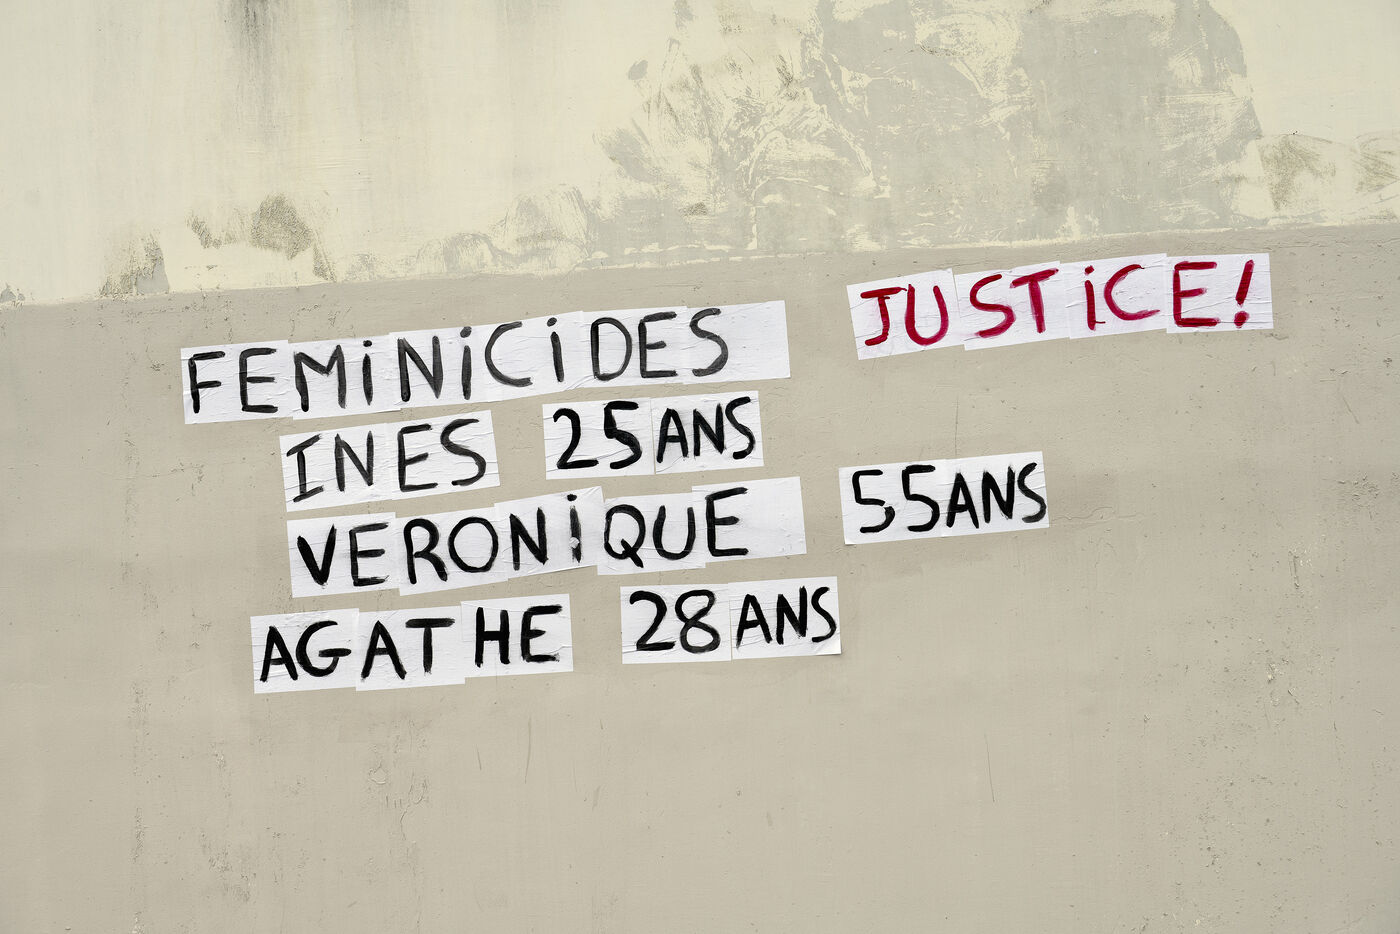 JUSTiCE!
FEMiNiCiDES
INES 25ANS
VERONiQUE 55ANS
AGATHE 28ANS